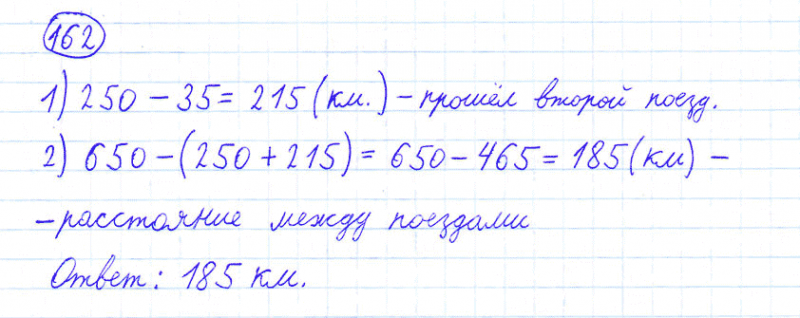 162
1) 250 - 35 = 215 (км.) - прошёл второй поезд.
2) 650 - (250 + 215) = 650 - 465 = 185 (км) -
- расстояние между поездами
Ответ: 185 км.